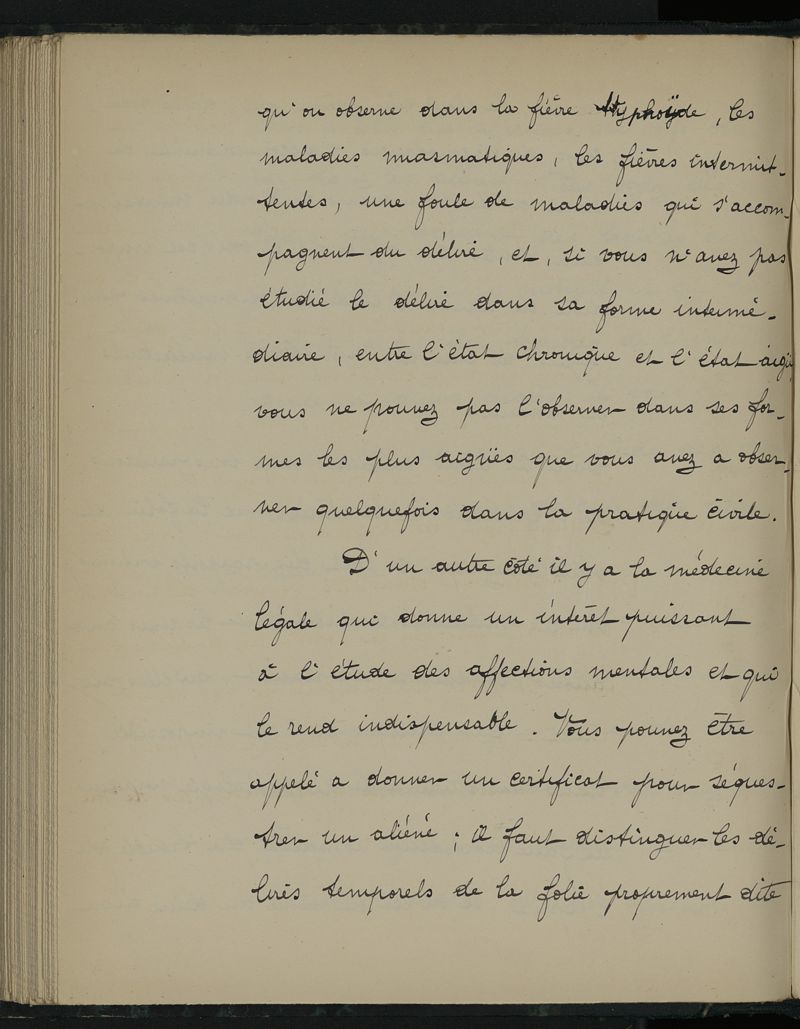 qu'on observe dans la fièvre typhoÿde, les
maladies miasmatiques, les fièvres intermit-
tentes, une foule de maladies qui s'accom-
pagnent du délire, et, si vous n'avez pas
étudié le délire dans sa forme intermé-
diaire, entre l'état chronique et l'état aigu
vous ne pouvez pas l'observer dans ses for-
mes les plus aigües que vous avez a obser-
ver quelquefois dans la pratique civile.
D'un autre côté il y a la médecine
légale qui donne un intérêt puissant
à l'étude des affections mentales et qui
le rend indispensable. Vous pouvez être
appelé a donner un certificat pour séques-
trer un aliéné ; il faut distinguer les dé-
lires temporels de la folie proprement dite